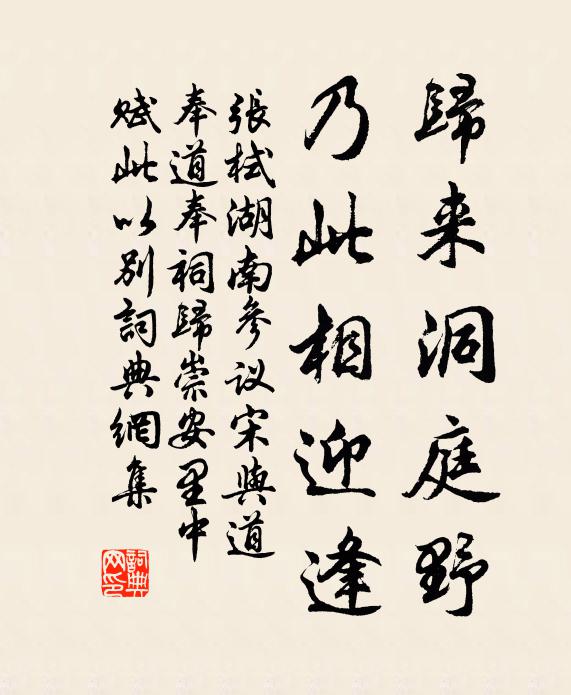 歸来洞庭野
乃此相迎逢
張栻湖南參议宋與道
奉道奉祠歸崇安里中
赋此以别詞典網集
詞典网印